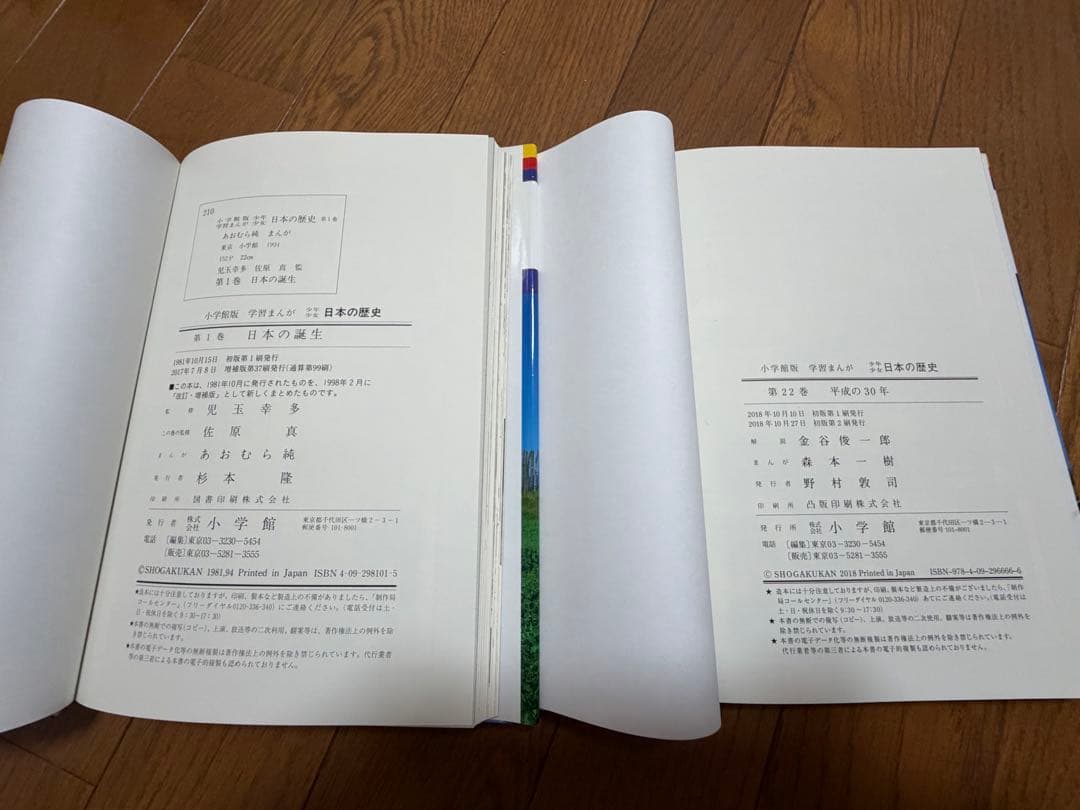 210
小学館版 少年
学習まんが 少女 日本の歴史 第1巻
あおむら純 まんが
東京 小学館 1994
152P 22cm
児玉幸多 佐原 真 監
第1巻 日本の誕生
小学館版 学習まんが 少年少女 日本の歴史
第1巻 日本の誕生
1981年10月15日 初版第1刷発行
2017年7月8日 増補版第37刷発行(通算第99刷)
■この本は、1981年10月に発行されたものを、1998年2月に
「改訂・増補版」として新しくまとめたものです。
監修 児玉幸多
この巻の監修 佐原 真
まんが あおむら純
発行者 杉本 隆
印刷所 図書印刷株式会社
発行者 株式会社 小学館 東京都千代田区一ツ橋2-3-1
郵便番号 101-8001
電話 〔編集〕東京03-3230-5454
〔販売〕東京03-5281-3555
©SHOGAKUKAN 1981,94 Printed in Japan ISBN 4-09-298101-5
★造本には十分注意しておりますが、印刷、製本など製造上の不備がありましたら、「制作
局コールセンター」(フリーダイヤル0120-336-340)にご連絡ください。(電話受付は土・
日・祝休日を除く9:30~17:30)
★本書の無断での複写(コピー)、上演、放送等の二次利用、翻案等は、著作権法上の例外を除
き禁じられています。
★本書の電子データ化等の無断複製は著作権法上の例外を除き禁じられています。代行業者
等の第三者による本書の電子的複製も認められておりません。
小学館版 学習まんが 少年少女 日本の歴史
第22巻 平成の30年
2018年10月10日 初版第1刷発行
2018年10月27日 初版第2刷発行
解説 金谷俊一郎
まんが 森本一樹
発行者 野村敦司
印刷所 凸版印刷株式会社
発行所 株式会社 小学館 東京都千代田区一ツ橋2-3-1
郵便番号 101-8001
電話 〔編集〕東京03-3230-5454
〔販売〕東京03-5281-3555
© SHOGAKUKAN 2018 Printed in Japan ISBN-978-4-09-296666-6
★ 造本には十分注意しておりますが、印刷、製本など製造上の不備がございましたら、「制作
局コールセンター」(フリーダイヤル0120-336-340)あてにご連絡ください。(電話受付は
土・日・祝休日を除く9:30~17:30)
★ 本書の無断での複写(コピー)、上演、放送等の二次利用、翻案等は、著作権法上の例外を除
き禁じられています。
★ 本書の電子データ化等の無断複製は著作権法上の例外を除き禁じられています。
代行業者等の第三者による本書の電子的複製も認められておりません。